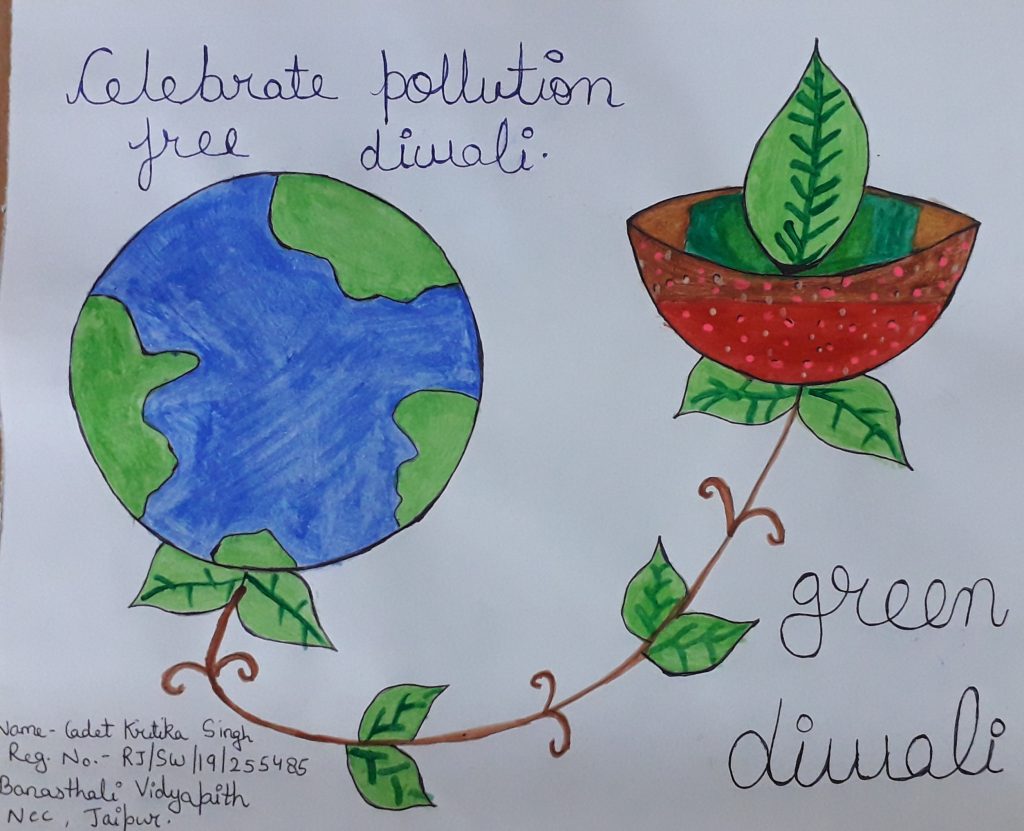 Celebrate pollution
free diwali.
green
diwali
Name- Cadet Kritika Singh
Reg. No.- RJ/SW/19/255485
Banasthali Vidyapith
Ncc, Jaipur.